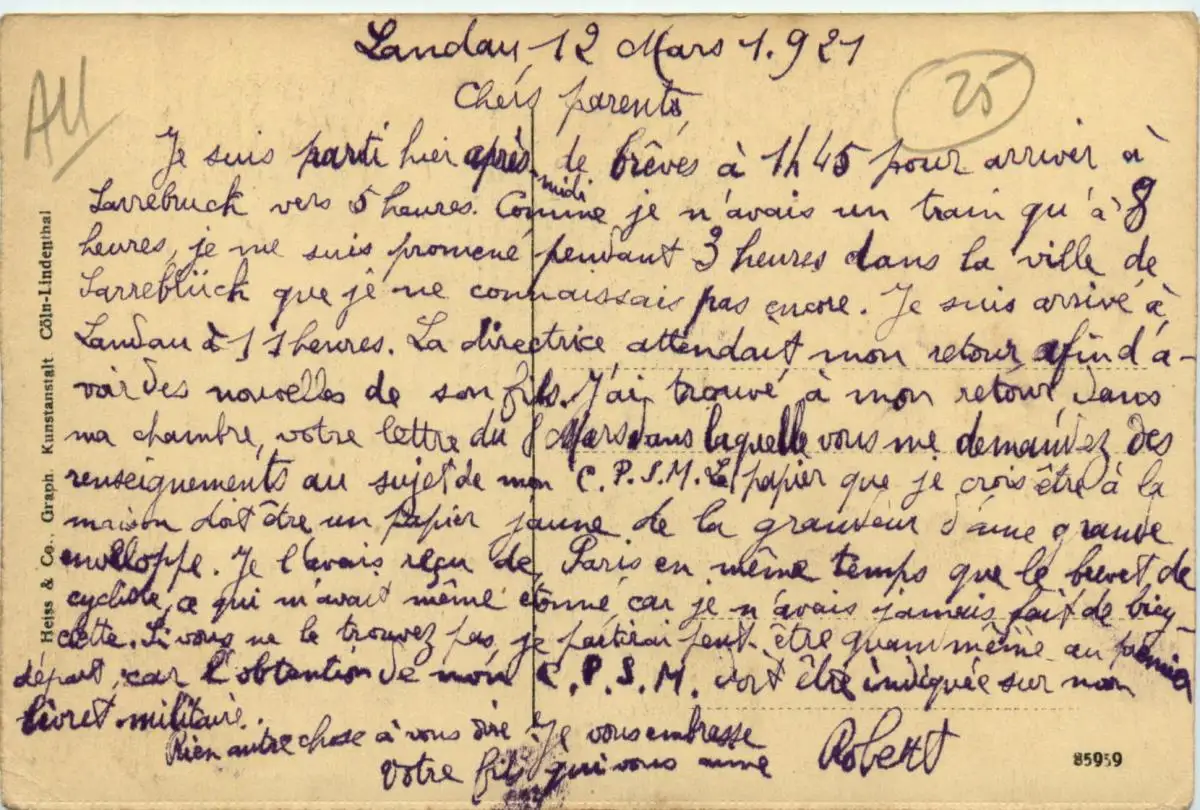 Landau, 12 Mars 1.921
Chers parents,
Je suis parti hier après-midi de brêves à 1h45 pour arriver à
Sarrebruck vers 5 heures. Comme je n'avais un train qu'à 8
heures, je me suis promené pendant 3 heures dans la ville de
Sarrebrück que je ne connaissais pas encore. Je suis arrivé à
Landau à 11 heures. La directrice attendait mon retour afin d'a-
voir des nouvelles de son fils. J'ai trouvé, à mon retour, dans
ma chambre, votre lettre du 8 Mars dans laquelle vous me demandez des
renseignements au sujet de mon C.P.S.M. Le papier que je crois être à la
maison doit être un papier jaune de la grandeur d'une grande
envelloppe. Je l'avais reçu de Paris en même temps que le brevet de
cycliste, ce qui m'avait même étonné car je n'avais jamais fait de bicy-
clette. Si vous ne le trouvez pas, je partirai peut-être quand même au premier
départ, car l'obtention de mon C.P.S.M. doit être indiquée sur mon
livret militaire.
Rien autre chose à vous dire Je vous embrasse
Votre fils qui vous aime Robert
AU
25
Heiss & Co., Graph. Kunstanstalt Cöln-Lindenthal
85959